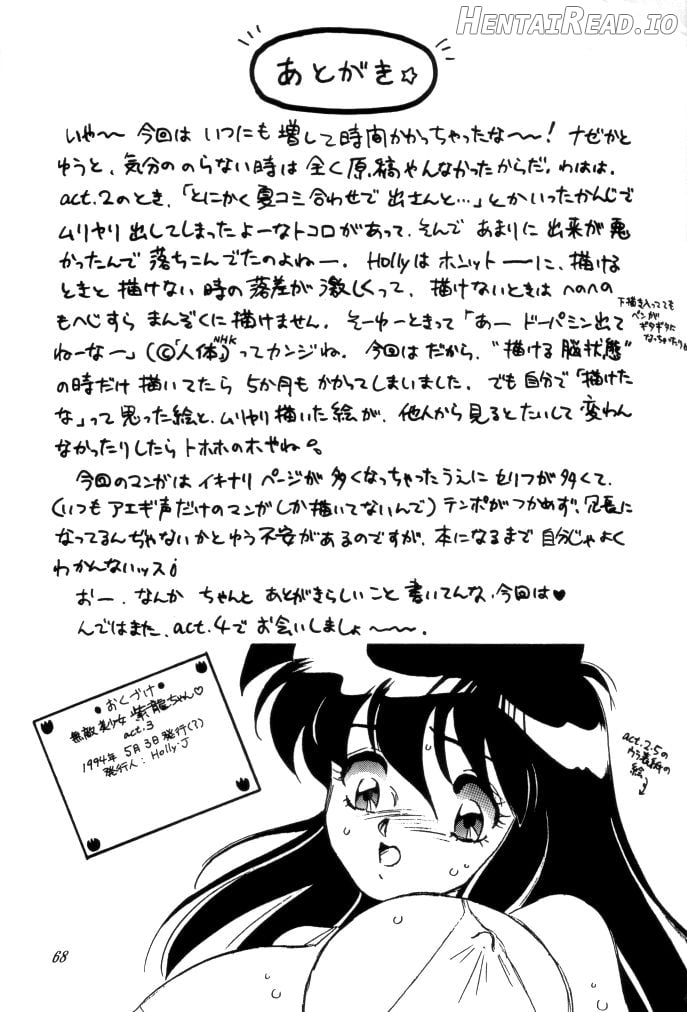 HENTAIREAD.IO
あとがき☆
いや〜〜 今回は いつにも 増して時間かかっちゃったな〜〜! ナゼかと
ゆうと、気分ののらない時は 全く原稿やんなかったからだ。わはは。
act.2のとき、「とにかく夏コミ合わせで 出さんと…」とかいったかんじで
ムリヤリ 出してしまったよーなトコロがあって、そんで あまりに 出来が 悪
かったんで 落ちこんでたのよねー。 Hollyは ホニットーーに、描ける
ときと 描けない 時の 落差が 激しくって、描けないときは へのへの
もへじすら まんぞくに 描けません。そーゆーときって「あー ドーパミン出て
ねーなー」(©「人体」NHK)ってカンジね。 今回は だから、"描ける 脳状態"
の時だけ 描いてたら 5か月も かかってしまいました。でも自分で「描けた
な」って 思った絵と、ムリヤリ 描いた 絵が、他人から 見るとたいして 変わん
なかったりしたら トホホのホやね。
下描き入ってても
ペンが
ギタギタに
なっちゃったり
今回のマンガは イキナリ ページが 多くなっちゃったうえに セリフが 多くて、
(いつも アエギ声だけのマンガしか 描いてないんで) テンポがつかめず、冗長に
なってるんぢゃないかとゆう 不安があるのですが、本になるまで 自分じゃよく
わかんないッス
おー、なんか ちゃんと あとがきらしいこと 書いてんな、今回は♥
んではまた、act.4で お会いしましょ〜〜〜。
●おくづけ●
無敵美少女 紫龍ちゃん♡
act.3
1994年 5月3日発行(?)
発行人:Holly.J
act.2.5の
ウラ表紙の
絵
68